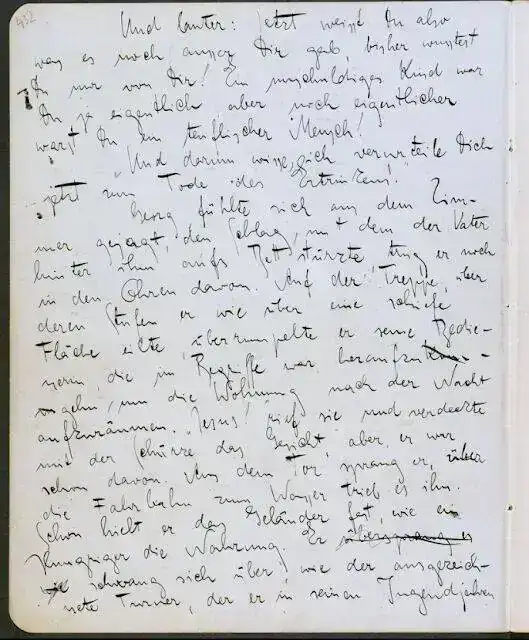 432
Und lauter: Jetzt weisst Du also
was es noch ausser Dir gab, bisher wusstest
Du nur von Dir! Ein unschuldiges Kind war
Du ja eigentlich aber noch eigentlicher
warst Du ein teuflischer Mensch!
Und darum wisse, ich verurteile Dich
jetzt zum Tode des Ertrinkens!
Georg fühlte sich aus dem Zim-
mer gejagt, den Schlag, mit dem der Vater
hinter ihm aufs Bett stürzte trug er noch
in den Ohren davon. Auf der Treppe, über
deren Stufen er wie über eine schiefe
Fläche eilte überrumpelte er seine Bedie-
nerin, die im Begriffe war heraufzu
gehn, um die Wohnung nach der Nacht
aufzuräumen. "Jesus! rief sie und verdeckte
mit der Schürze das Gesicht, aber er war
schon davon. Aus dem Tor sprang er, über
die Fahrbahn zum Wasser trieb es ihn.
Schon hielt er das Geländer fest, wie ein
Hungriger die Nahrung. Er übersprang es
schwang sich über, wie der ausgezeich-
nete Turner, der er in seinen Jugendjahren